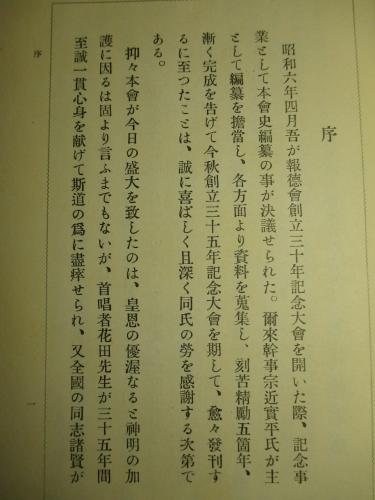 序
昭和六年四月吾が報德會創立三十年記念大會を開いた際、記念事
業として本會史編纂の事が決議せられた。爾來幹事宗近實平氏が主
として編纂を擔當し、各方面より資料を蒐集し、刻苦精勵五箇年、
漸く完成を告げて今秋創立三十五年記念大會を期して、愈々發刊す
るに至つたことは、誠に喜ばしく且深く同氏の勞を感謝する次第で
ある。
抑々本會が今日の盛大を致したのは、皇恩の優渥なると神明の加
護に因るは固より言ふまでもないが、首唱者花田先生が三十五年間
至誠一貫心身を献げて斯道の爲に盡瘁せられ、又全國の同志諸賢が
序
一